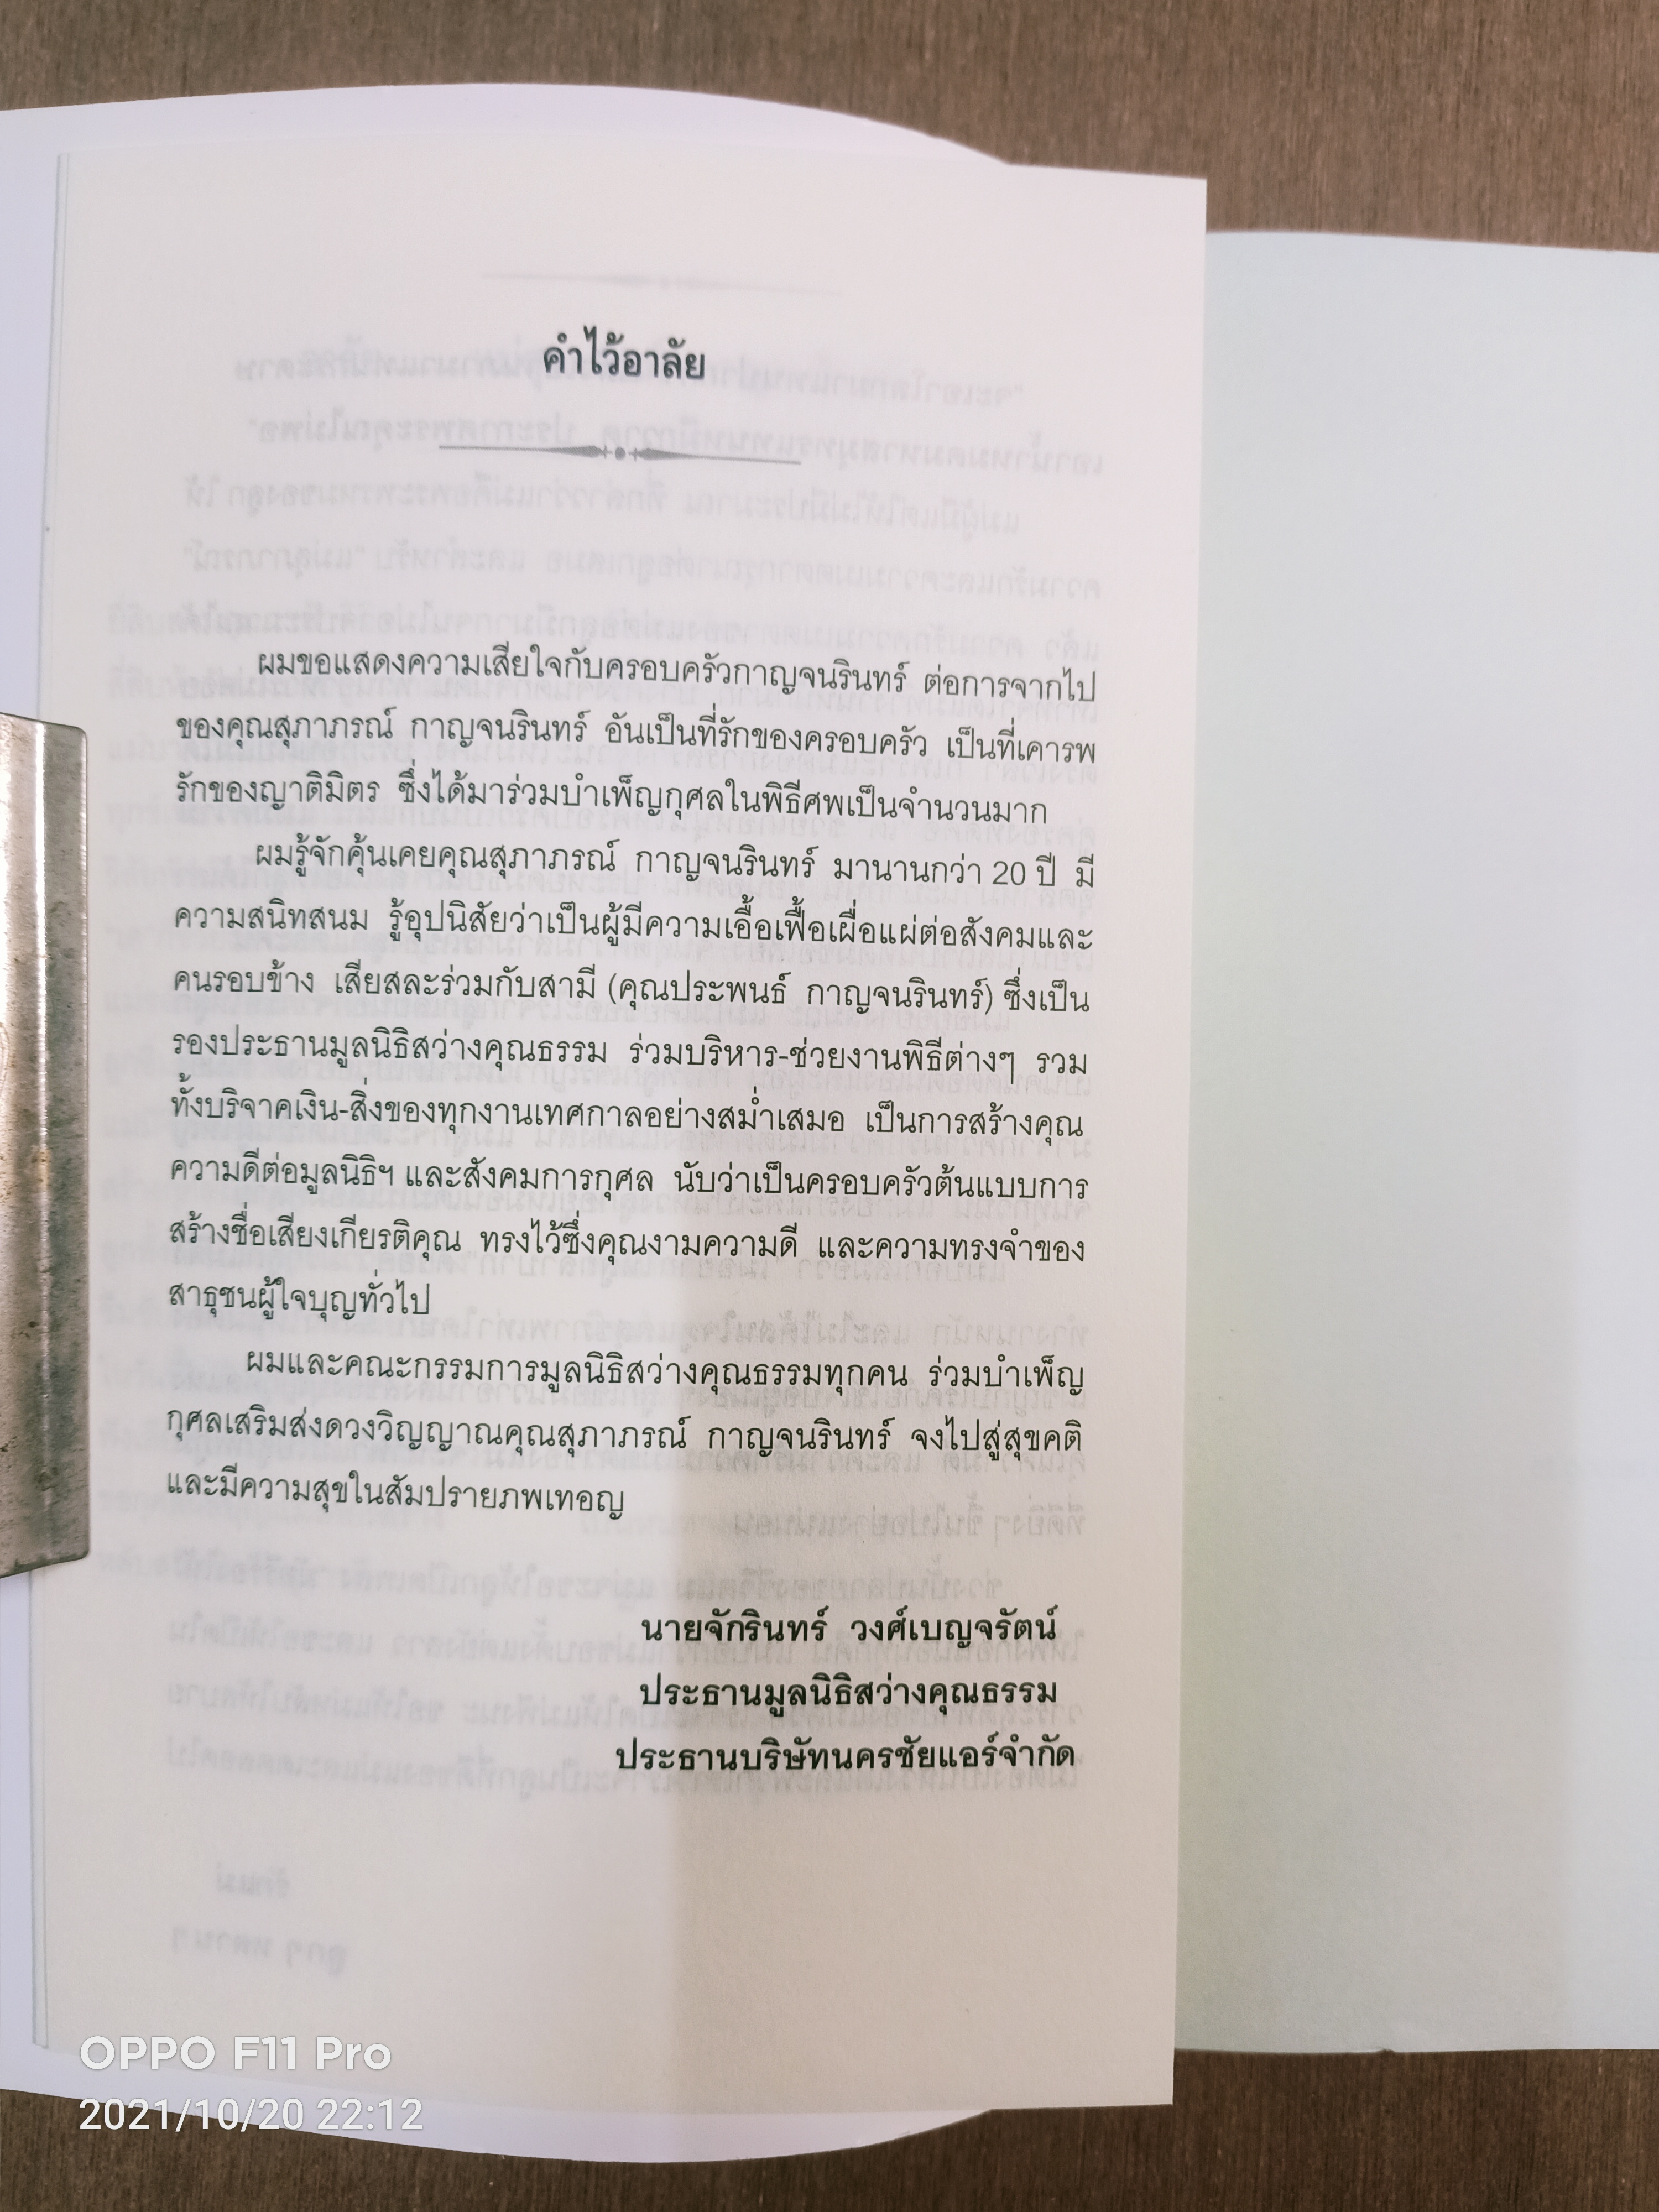 คำไว้อาลัย
ผมขอแสดงความเสียใจกับครอบครัวกาญจนรินทร์ ต่อการจากไป
ของคุณสุภาภรณ์ กาญจนรินทร์ อันเป็นที่รักของครอบครัว เป็นที่เคารพ
รักของญาติมิตร ซึ่งได้มาร่วมบำเพ็ญกุศลในพิธีศพเป็นจำนวนมาก
ผมรู้จักคุ้นเคยคุณสุภาภรณ์ กาญจนรินทร์ มานานกว่า 20 ปี มี
ความสนิทสนม รู้อุปนิสัยว่าเป็นผู้มีความเอื้อเฟื้อเผื่อแผ่ต่อสังคมและ
คนรอบข้าง เสียสละร่วมกับสามี (คุณประพนธ์ กาญจนรินทร์) ซึ่งเป็น
รองประธานมูลนิธิสว่างคุณธรรม ร่วมบริหาร-ช่วยงานพิธีต่างๆ รวม
ทั้งบริจาคเงิน-สิ่งของทุกงานเทศกาลอย่างสม่ำเสมอ เป็นการสร้างคุณ
ความดีต่อมูลนิธิฯ และสังคมการกุศล นับว่าเป็นครอบครัวต้นแบบการ
สร้างชื่อเสียงเกียรติคุณ ทรงไว้ซึ่งคุณงามความดี และความทรงจำของ
สาธุชนผู้ใจบุญทั่วไป
ผมและคณะกรรมการมูลนิธิสว่างคุณธรรมทุกคน ร่วมบำเพ็ญ
กุศลเสริมส่งดวงวิญญาณคุณสุภาภรณ์ กาญจนรินทร์ จงไปสู่สุขคติ
และมีความสุขในสัมปรายภพเทอญ
นายจักรินทร์ วงศ์เบญจรัตน์
ประธานมูลนิธิสว่างคุณธรรม
ประธานบริษัทนครชัยแอร์จำกัด
OPPO F11 Pro
2021/10/20 22:12